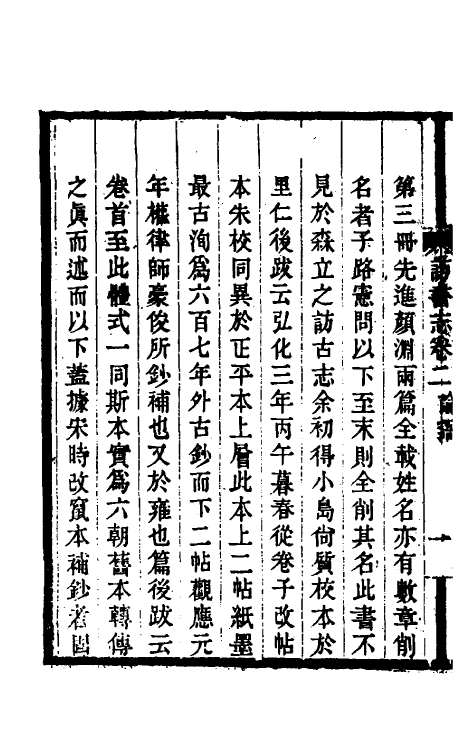 第三冊先進顏淵兩篇全載姓名亦有數章削
名者子路憲問以下至末則全削其名此書不
見於森立之訪古志余初得小島尙質校本於
里仁後跋云弘化三年丙午暮春從卷子改帖
本朱校同異於正平本上層此本上二帖紙墨
最古洵爲六百七年外古鈔而下二帖觀應元
年權律師豪俊所鈔補也又於雍也篇後跋云
卷首至此體式一同斯本實爲六朝舊本轉傳
之眞而述而以下蓋據宋時改竄本補鈔者固
訪書志卷二
一